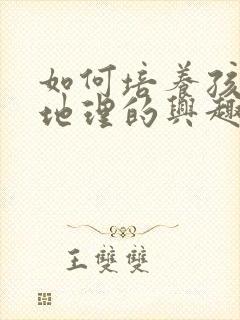 如何培養孩
地理的興趣
王雙雙